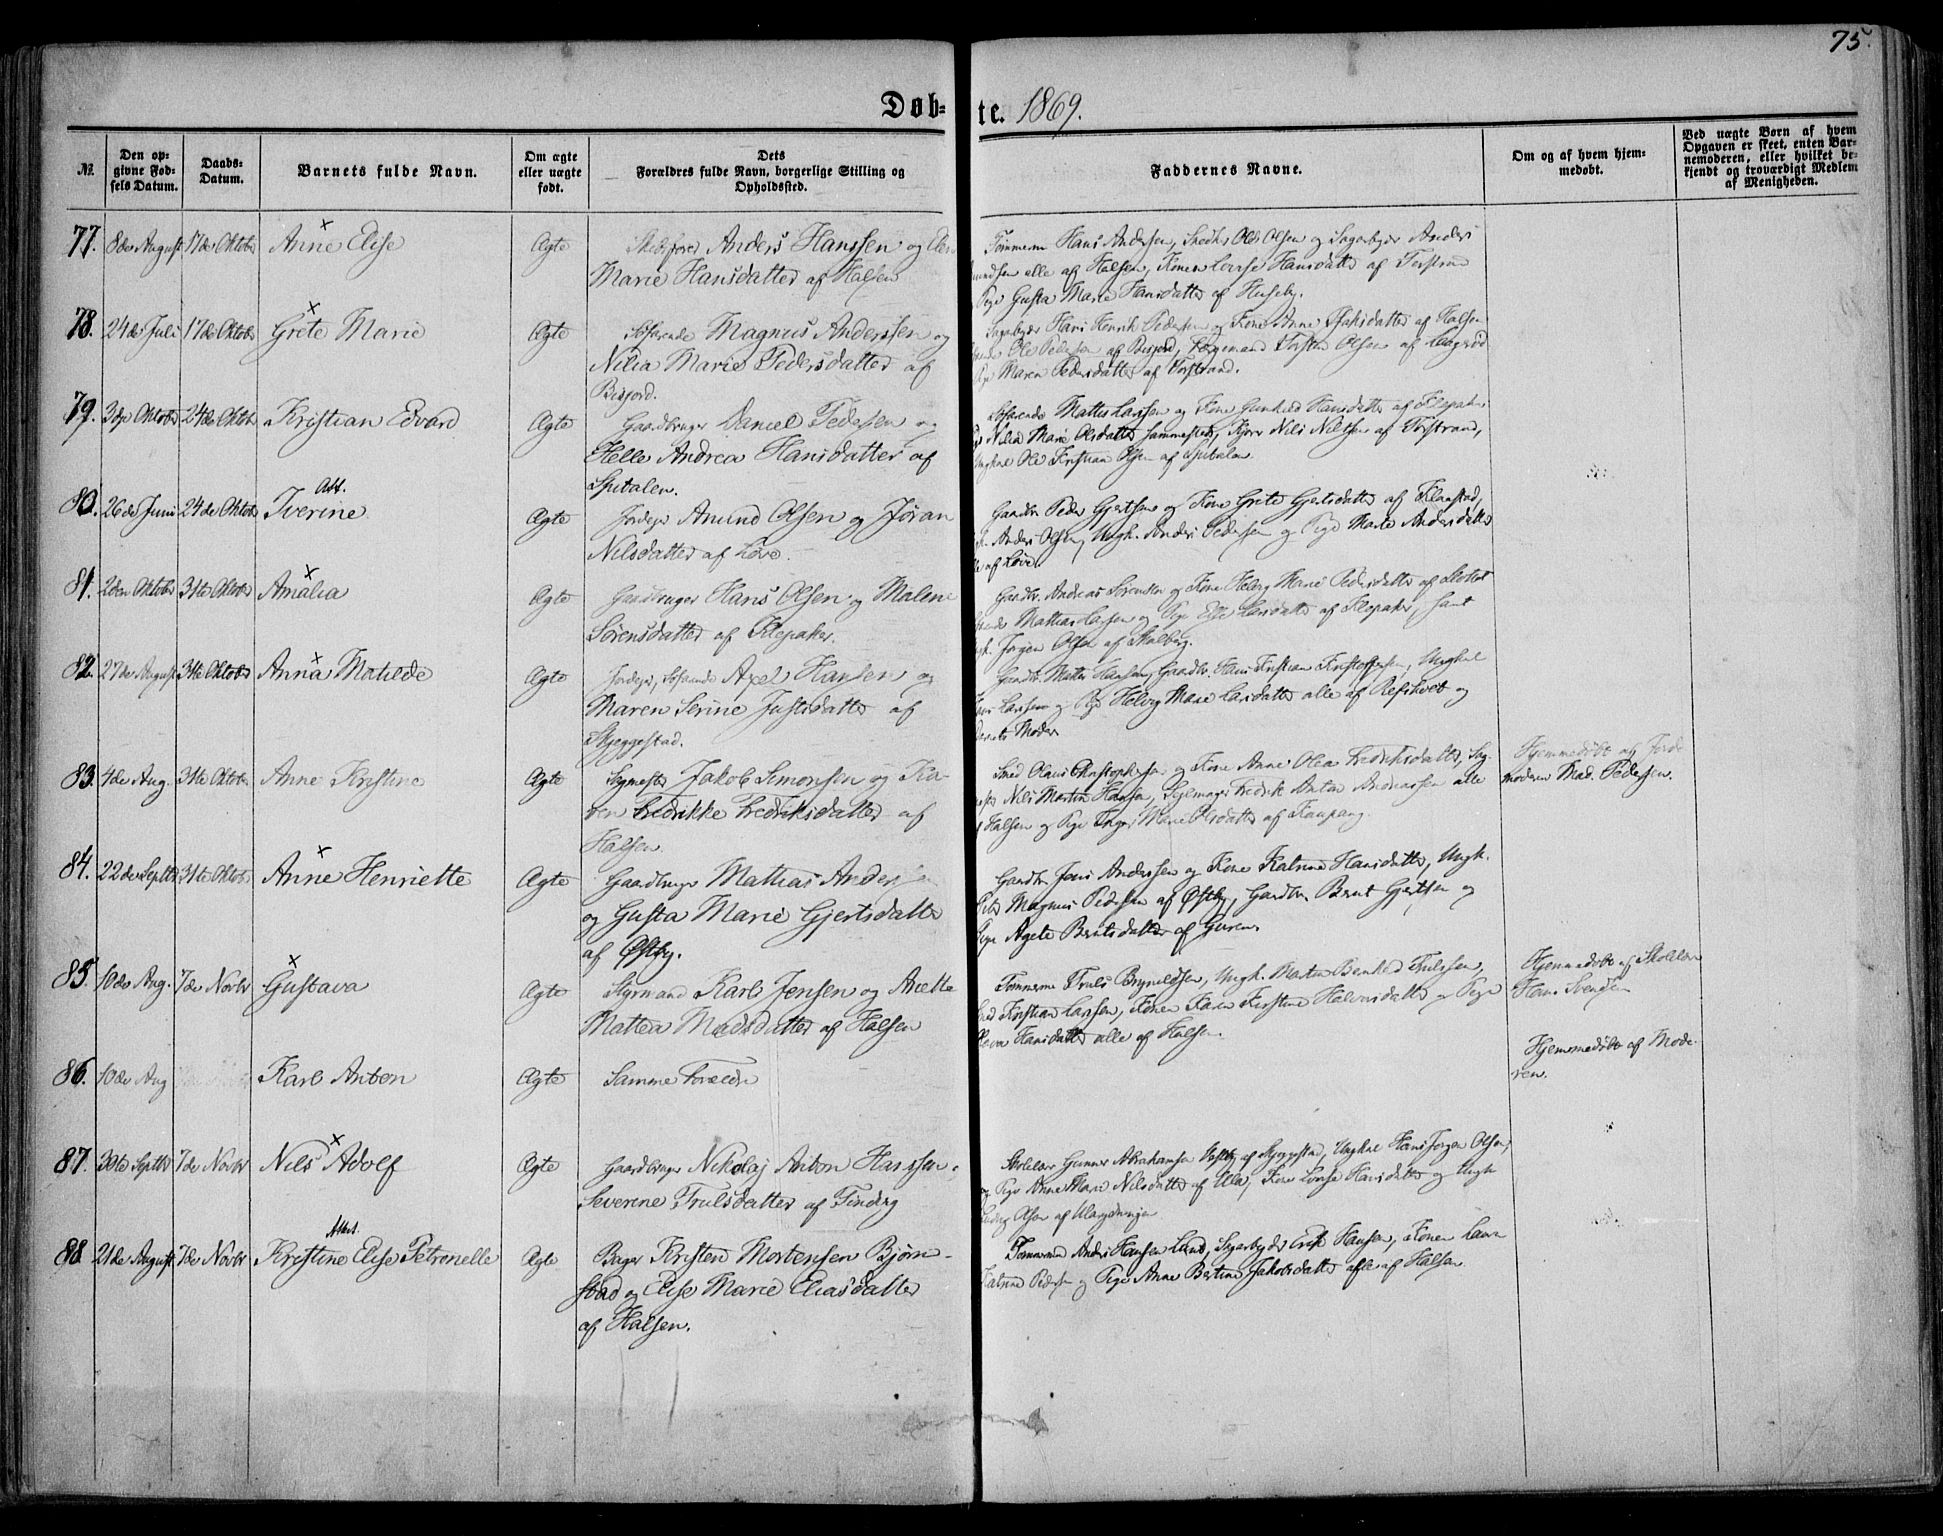 75.
Døb= te. 1869.
№.
Den op=
givne Fød=
sels Datum.
Daabs=
Datum.
Barnets fulde Navn.
Om ægte
eller uægte
født.
Dets
Forældres fulde Navn, borgerlige Stilling og
Opholdssted.
Faddernes Navne.
Om og af hvem hjem=
medøbt.
Ved uægte Børn af hvem
Opgaven er skeet, enten Bar=
nemoderen, eller hvilket be=
kjendt og troværdigt Medlem
af Menigheden.
77. 8de August 17de Oktober Anne Elise Ægte Skibsfører Anders Hanssen og
Marie Hansdatter af Halsen
Tømmerm Hans Andersen, Snedker Ole Olsen og Sagarbejder Anders
alle af Halsen, Konen Lovise Hansdatter af Torstrand
Pige Gusta Marie Hansdatter af Huseby.
78. 24de Juli 17de Oktober Grete Marie Ægte Søfarende Magnus Anderssen og
Nilia Marie Pedersdatter af
Bisjord.
Sagarbejder Hans Henrik Pedersen og Kone Anne Isaksdatter af Halsen
Ole Pedersen af Bisjord, Torsten Olsen af
Pige Maren Pedersdatter af Torstrand.
79. 3die Oktober 24de Oktober Kristian Edvard Ægte Gaardbruger Daniel Pedersen og
Helle Andrea Hansdatter af
Spitalen.
Søfarende Mattis Larssen og Kone Gunhild Hansdatter af Klepaker
Nilia Marie Olsdatter sammesteds, Nils Nilssen af Torstrand,
Ungkarl Ole Kristian Olsen af Spitalen
80. 26de Juni 24de Oktober Att. Iverine Ægte Jordejer Amund Olsen og Jøran
Nilsdatter af Løve.
Gaardbr Peder Gjertsen og Kone Grete Gjertsdatter af Klaastad,
Anders Olsen, Ungk. Anders Pedersen og Pige Marte Andersdatter
af Løve
81. 2den Oktober 31te Oktober Amalia Ægte Gaardbruger Hans Olsen og Malene
Sørensdatter af Klepaker.
Gaardbr. Andreas Sørensen og Kone Helvig Marie Pedersdatter af
Mathias Larssen og Pige Else Larsdatter af Klepaker, samt
Jørgen Olsen af Skalberg.
82. 27de August 31te Oktober Anna Matilde Ægte Jordejer, Søfarende Axel Hansen og
Maren Serine Justsdatter af
Skjeggestad.
Gaardbr. Mattis Hansen, Gaardbr. Hans Kristian Kristoffersen, Ungkarl
Larssen og Pige Helvig Marie Larsdatter alle af Refsholt og
Barnets Moder
83. 4de Aug. 31te Oktober Anne Kristine Ægte Jakob Simonsen og Ka-
ren Fredrikke Fredriksdatter af
Halsen
Smed Olaus Christophersen og Kone Anne Olea Fredriksdatter,
Nils Martin Hansen, Sejlmager Fredrik Anton Andreassen alle
af Halsen og Pige Inger Marie Olsdatter af Kaupang.
Hjemmedøbt af Jorde-
moderen Mad. Pedersen.
84. 22de Septbr 31te Oktober Anne Henriette Ægte Gaardbruger Mathias Anderssen
og Gusta Marie Gjertsdatter
af Østby.
Gaardbr Jens Anderssen og Kone Katrine Hansdatter, Ungk.
Magnus Pedersen af Østby, Gaardbr. Brunt Gjertsen og
Pige Agete Bruntsdatter af Guren
85. 10de Aug. 7de Novbr Gustava Ægte Styrmand Karl Jensen og Anette
Mattea Madsdatter af Halsen
Tømmerm Truls Brynildsen, Ungk. Martin Bernhard Trulssen,
Smed Kristian Larssen, Konen Karen Kirstine Halvorsdatter og Pige
Hansdatter alle af Halsen.
Hjemmedøbt af Skolelærer
Hans Svendsen
86. 10de Aug Karl Anton Ægte Samme Forældre
Hjemmedøbt af Mode-
ren.
87. 30te Septbr 7de Novbr Nils Adolf Ægte Gaardbruger Nikolaj Anton Hanssen,
Severine Trulsdatter af Tinding
Skolelærer Gunner Abrahamsen Vestby af Skjeggestad, Ungkarl Hans Jørgen Olsen,
og Pige Anne Marie Nilsdatter af Ula, Kone Lovise Hansdatter og Ungk
Olsen af
88. 21de August 7de Novbr Attest. Kristine Elise Petronelle Ægte Bager Kristen Mortensen Bjørn-
stad og Elise Marie Eliasdatter
af Halsen.
Tømmermd Anders Hansen Lund, Sagarbejder Erik Hansen, Konen
Katrine Pedersen og Pige Anne Bertine Jakobsdatter alle af Halsen